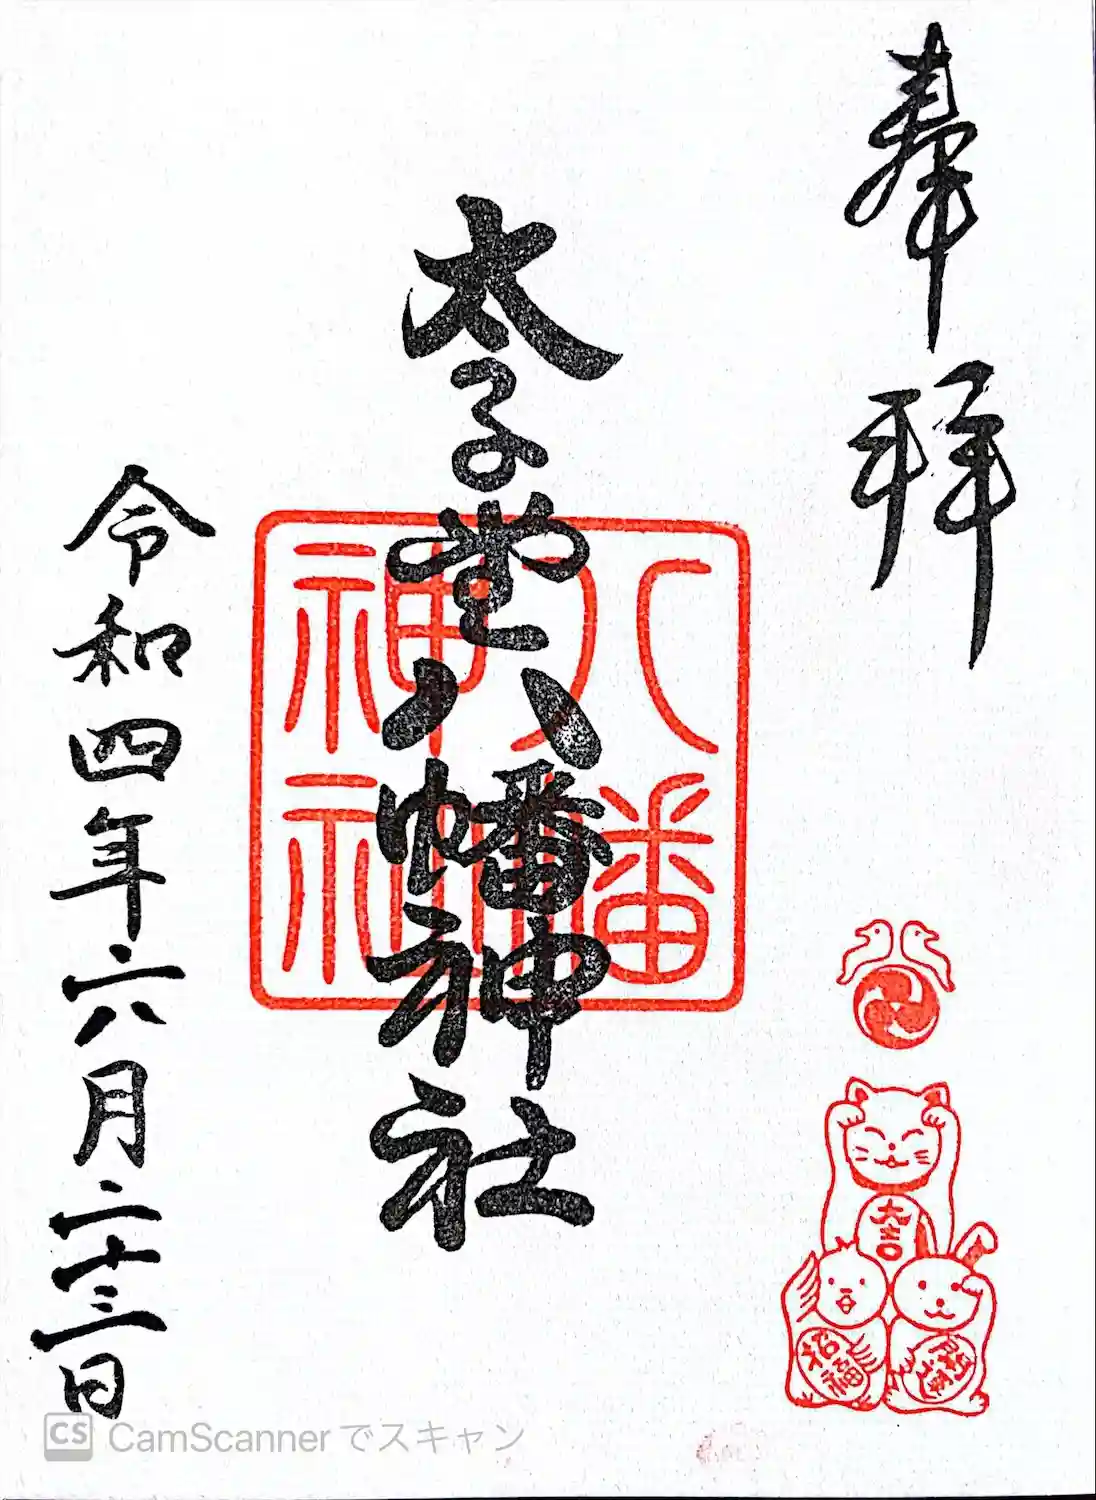 奉拝
太子堂八幡神社
八幡
神社
令和四年六月二十三日
大吉
招福
開運
CS CamScannerでスキャン